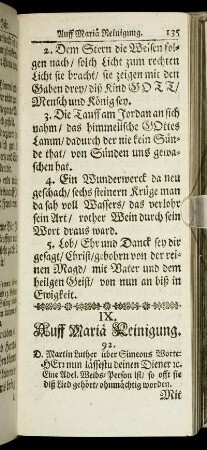 Auff Mariä Reinigung. 135
2. Dem Stern die Weisen fol-
gen nach/ solch Licht zum rechten
Licht sie bracht/ sie zeigen mit den
Gaben drey/ diß Kind GOTT/
Mensch und König sey.
3. Die Tauff am Jordan an sich
nahm/ das himmelische GOttes
Lamm/ dadurch der nie kein Sün-
de that/ von Sünden uns gewa-
schen hat.
4. Ein Wunderwerck da neu
geschach/ sechs steinern Krüge man
da sah voll Wassers/ das verlohr
sein Art/ rother Wein durch sein
Wort draus ward.
5. Lob/ Ehr und Danck sey dir
gesagt/ Christ/ gebohrn von der rei-
nen Magd/ mit Vater und dem
heilgen Geist/ von nun an biß in
Ewigkeit.
IX.
Auff Mariä Reinigung.
92.
D. Martin Luther über Simeons Worte:
HErr nun lässestu deinen Diener ꝛc.
Eine Adel. Weibs-Person ist/ so offt sie
diß Lied gehört/ ohnmächtig worden.
Mit